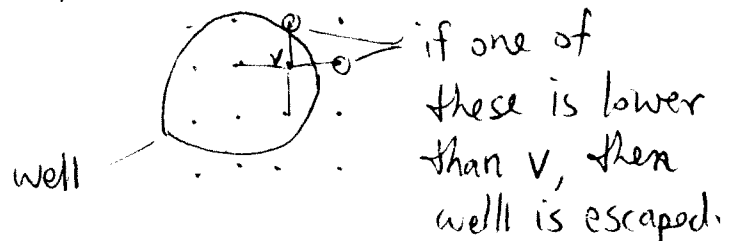 v
if one of
these is lower
than v, then
well is escaped.
well